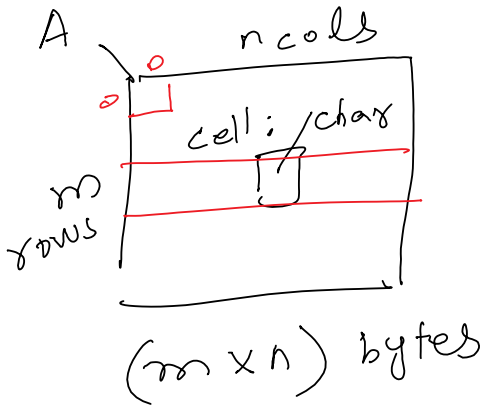 A
n cols
0
0
cell: char
m
rows
(m x n) bytes